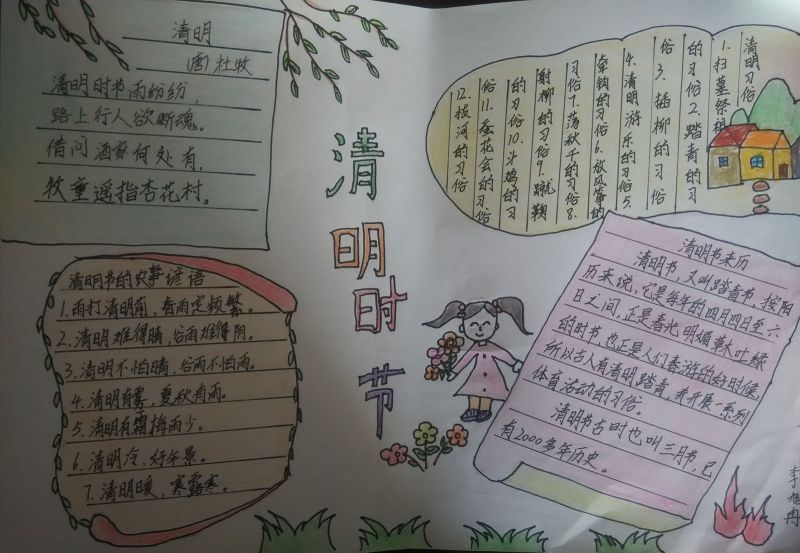 清明
(唐)杜牧
清明时节雨纷纷,
路上行人欲断魂。
借问酒家何处有,
牧童遥指杏花村。
清明时节
清明习俗
1.扫墓祭祖
的习俗2.踏青的习
俗3.插柳的习俗
4.清明游乐的习俗5.
牵钩的习俗6.放风筝的
习俗7.荡秋千的习俗8.
射柳的习俗9.蹴鞠
的习俗10.斗鸡的习
俗11.蚕花会的习俗
12.拔河的习俗
清明节的农事谚语
1.雨打清明前,春雨定频繁。
2.清明难得晴,谷雨难得阴。
3.清明不怕晴,谷雨不怕雨。
4.清明有雾,夏秋有雨。
5.清明有霜梅雨少。
6.清明冷,好年景。
7.清明暖,寒露寒。
清明节来历
清明节,又叫踏青节,按阳
历来说,它是每年的四月四日至六
日之间,正是春光明媚草木吐绿
的时节,也正是人们春游的好时候,
所以古人有清明踏青,并开展一系列
体育活动的习俗。
清明节古时也叫三月节,已
有2000多年历史。
李旭冉